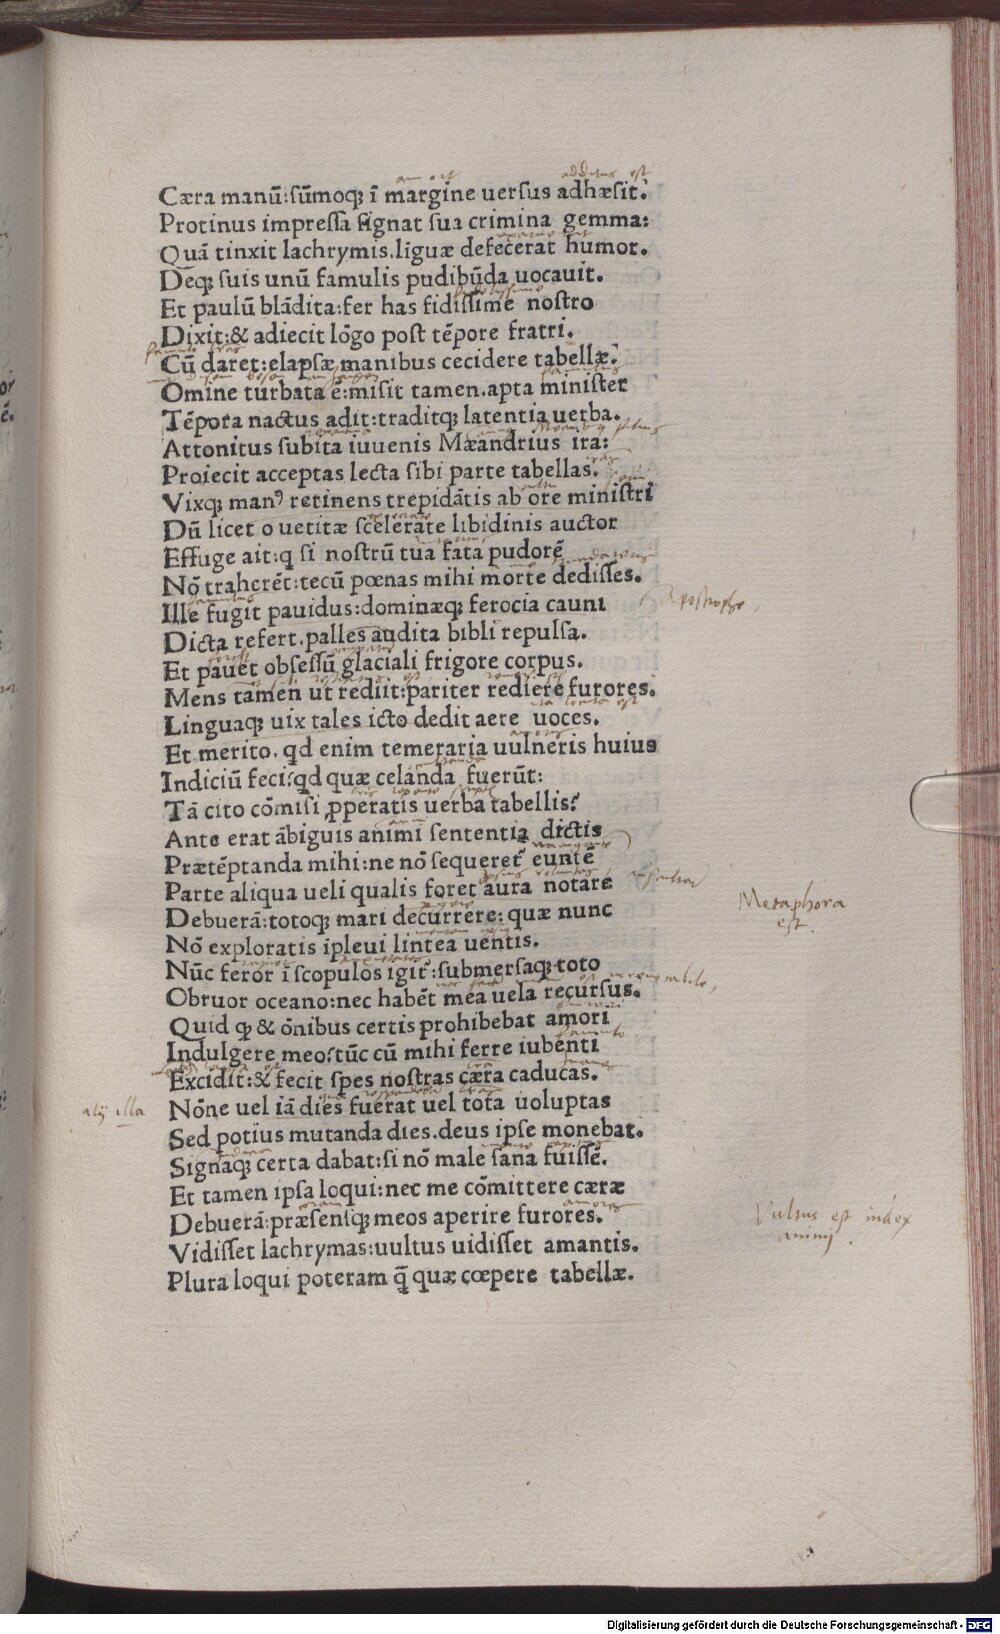 Cæra manū:sūmoqꝫ ī margine uersus adhæsit.
Protinus impressa signat sua crimina gemma:
Quā tinxit lachrymis.līguæ defecerat humor.
Deqꝫ suis unū famulis pudibūda uocauit.
Et paulū blādita:fer has fidissime nostro
Dixit:& adiecit lōgo post tēpore fratri.
Cū daret:elapsæ manibus cecidere tabellæ.
Omine turbata ē:misit tamen.apta minister
Tēpora nactus adit:traditqꝫ latentia uerba.
Attonitus subita iuuenis Mæandrius ira:
Proiecit acceptas lecta sibi parte tabellas.
Vixqꝫ manꝰ retinens trepidātis ab ore ministri
Dū licet o uetitæ scelerate libidinis auctor
Effuge ait:q si nostrū tua fata pudorē
Nō traherēt:tecū pœnas mihi morte dedisses.
Apostrophe
Ille fugit pauidus:dominæqꝫ ferocia cauni
Dicta refert.palles audita bibli repulsa.
Et pauet obsessū glaciali frigore corpus.
Mens tamen ut rediit:pariter rediere furores.
Linguaqꝫ uix tales icto dedit aere uoces.
Et merito.qd enim temeraria uulneris huius
Indiciū feci:qd quæ celanda fuerūt:
Tā cito cōmisi ꝓperatis uerba tabellis?
Ante erat ābiguis animi sententia dictis
Prætēptanda mihi:ne nō sequeret̃ eunte
Parte aliqua ueli qualis foret aura notare
Metaphora
est.
Debuerā:totoqꝫ mari decurrere:quæ nunc
Nō exploratis ipleui lintea uentis.
Nūc feror ī scopulos igit̃:submersaqꝫ toto
Obruor oceano:nec habēt mea uela recursus.
Quid qꝫ & ōnibus certis prohibebat amori
Indulgere meo:tūc cū mihi ferre iubenti
Excidit:& fecit spes nostras cæra caducas.
alij illa
Nōne uel iā dies fuerat uel tota uoluptas
Sed potius mutanda dies.deus ipse monebat.
Signaqꝫ certa dabat:si nō male sana fuissē.
Et tamen ipsa loqui:nec me cōmittere cæræ
Debuerā:præsensqꝫ meos aperire furores.
Vultus est index
animj.
Vidisset lachrymas:uultus uidisset amantis.
Plura loqui poteram q̄ quæ cœpere tabellæ.
Digitalisierung gefördert durch die Deutsche Forschungsgemeinschaft - DFG